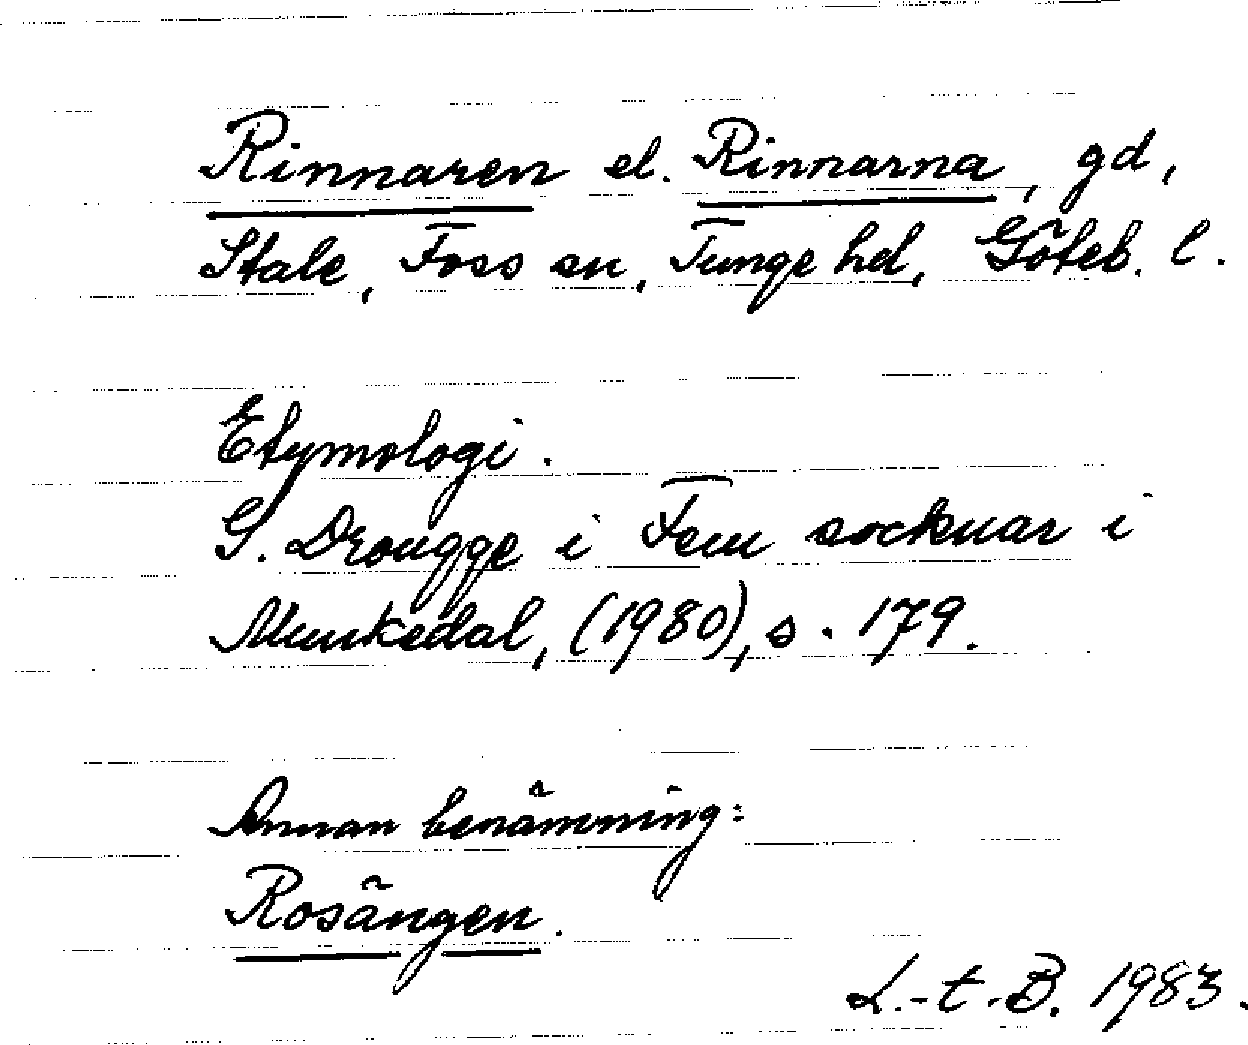 Rinnaren el. Rinnarna, gd,
Stale, Foss sn, Tunge hd, Göteb. l.
Etymologi.
G. Drougge i Fem socknar i
Munkedal, (1980), s. 179.
Annan benämning:
Rosängen.
L.-t.-B. 1983.